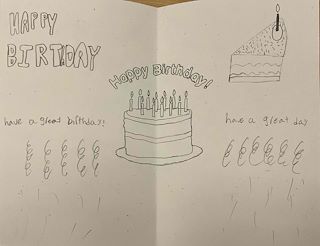 HAPPY
BIRTHDAY
have a great birthday!
Happy Birthday!
have a great day